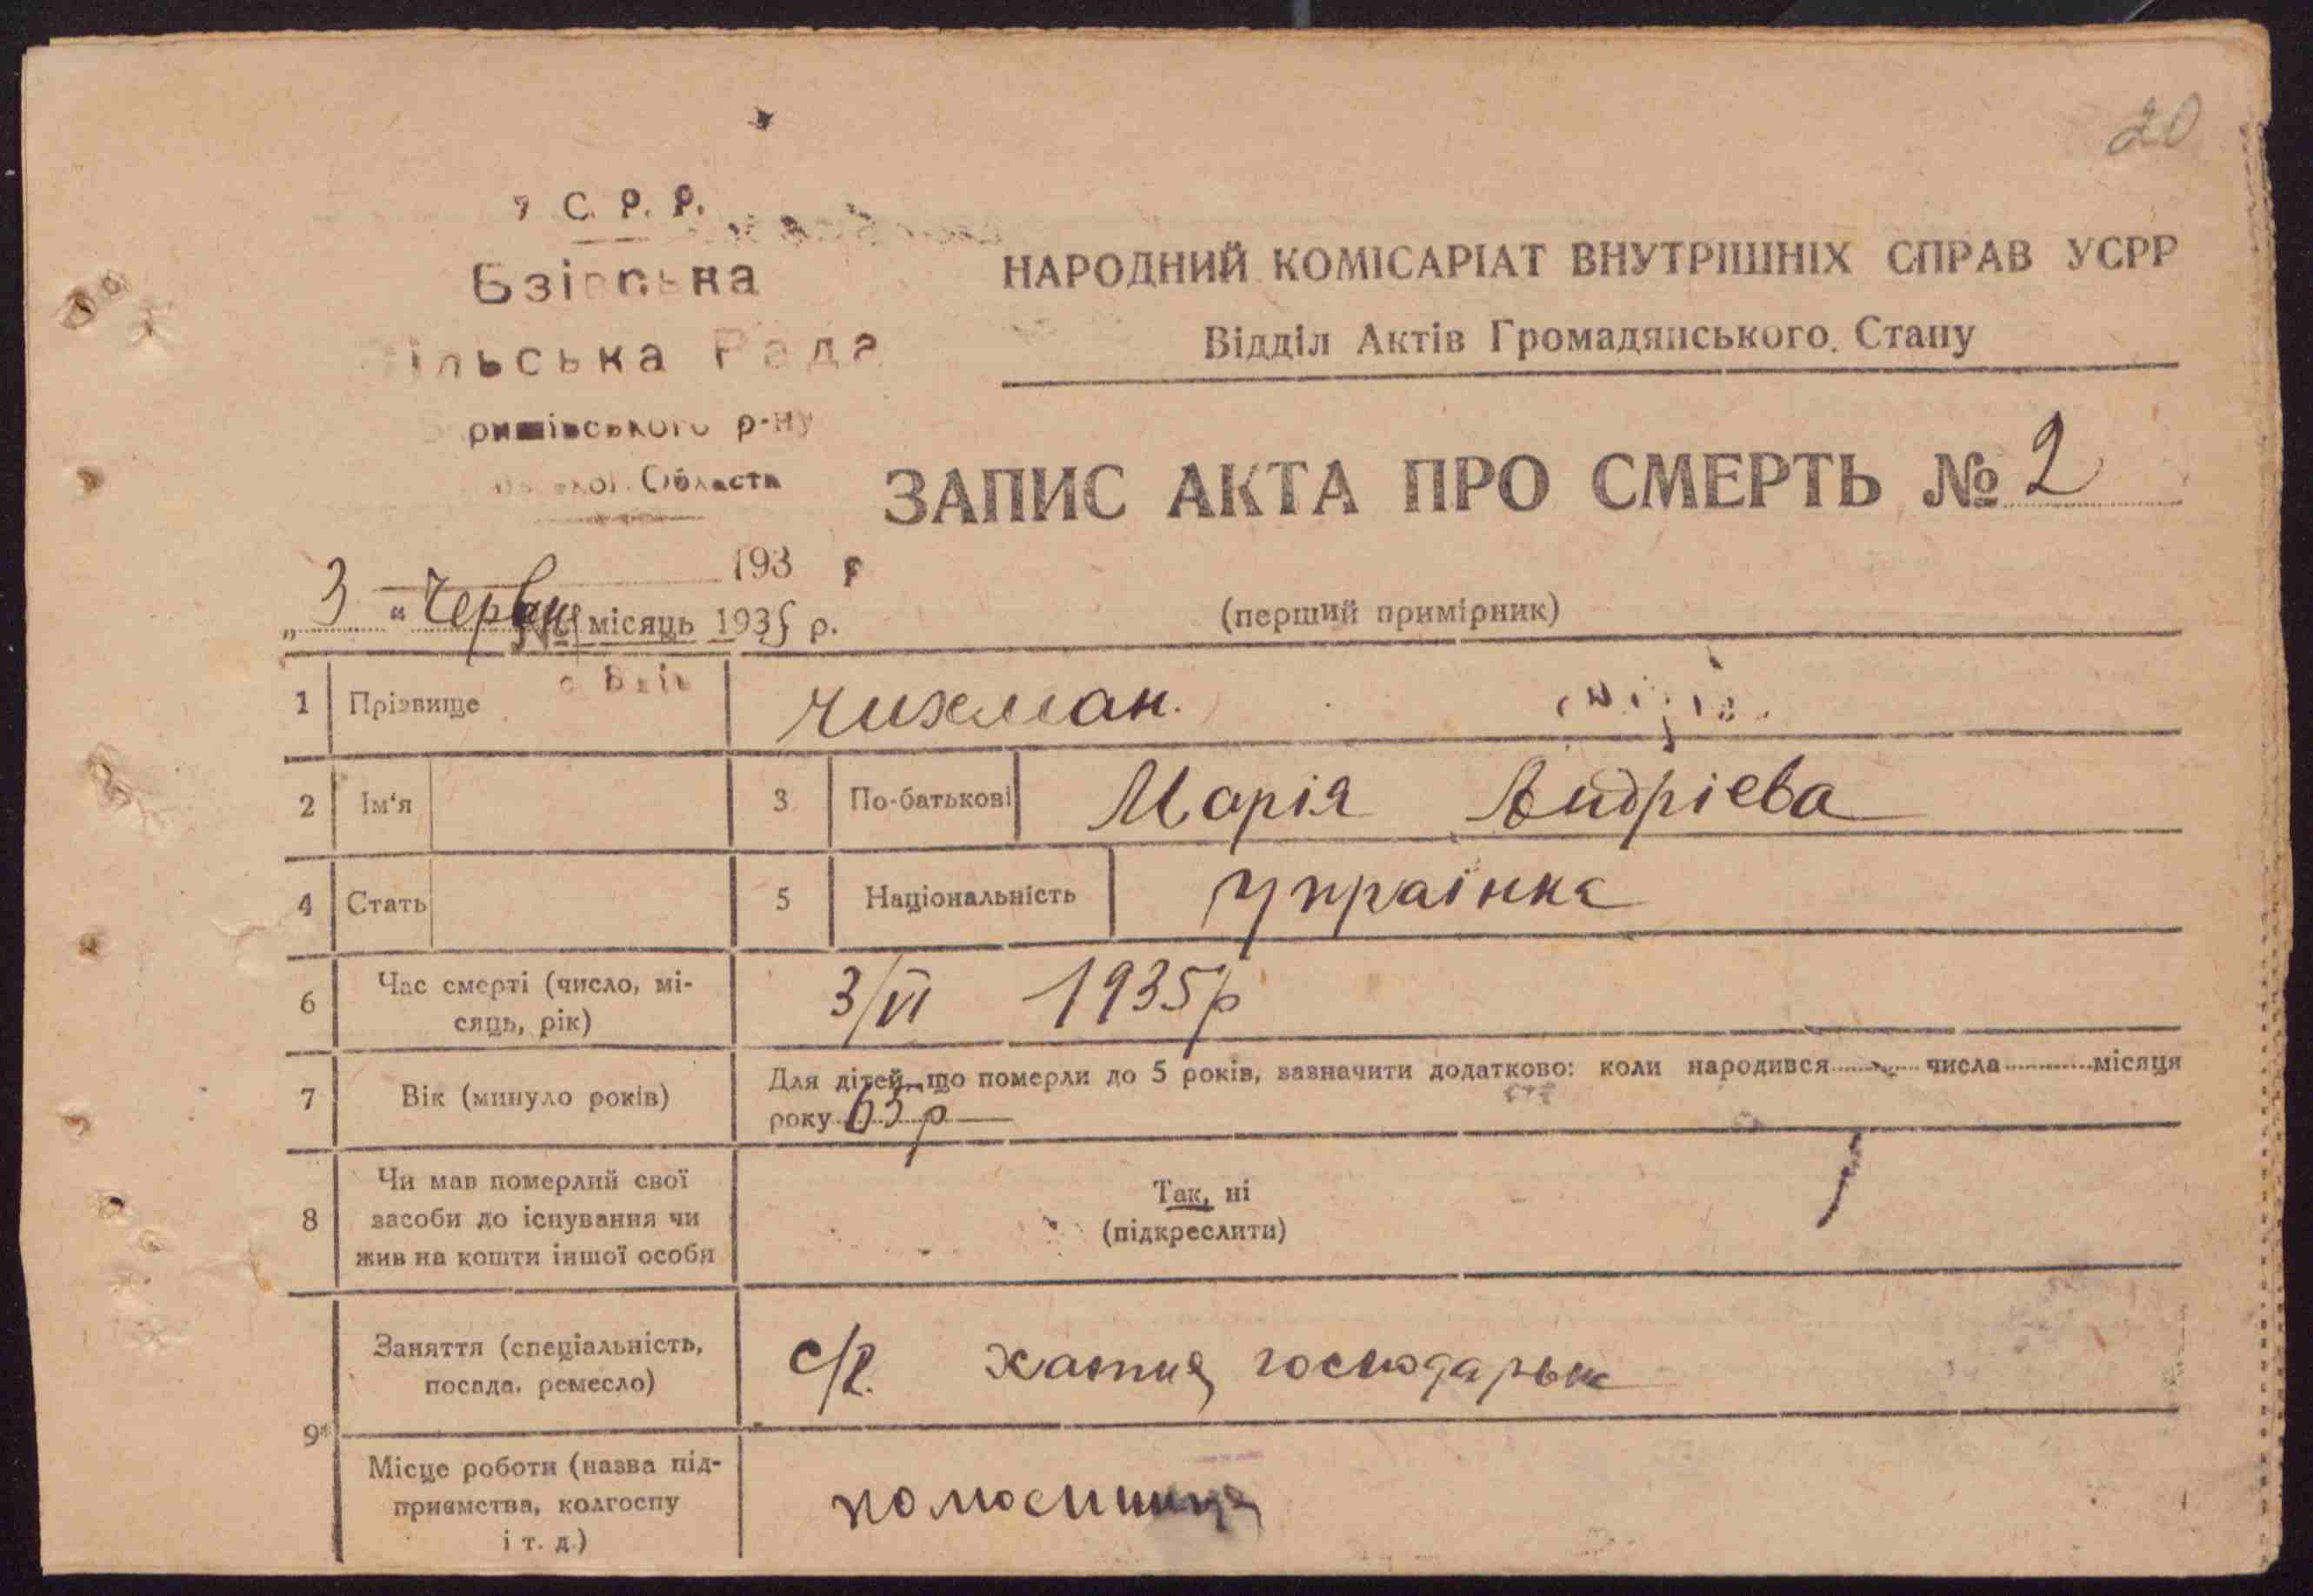 20
У С. Р. Р.
Бзівська
ільська Рада
ришівського р-ну
Області
НАРОДНИЙ КОМІСАРІАТ ВНУТРІШНІХ СПРАВ УСРР
Відділ Актів Громадянського Стану
ЗАПИС АКТА ПРО СМЕРТЬ № 2
193 р
„ 3 “ Червня місяць 1935 р.
№
(перший примірник)
с Бзів
1 Прізвище Чихман.
2 Ім‘я 3 По-батькові Марія Андрієва
4 Стать 5 Національність Українка
6 Час смерті (число, мі-
сяць, рік) 3/VI 1935 р
7 Вік (минуло років) Для дітей, що померли до 5 років, зазначити додатково: коли народився числа місяця
року 63 р
8 Чи мав померлий свої
засоби до існування чи
жив на кошти іншої особи
Так, ні
(підкреслити)
9 Заняття (спеціальність,
посада, ремесло) с/г. хатня господарьк
Місце роботи (назва під-
приємства, колгоспу
і т. д.)